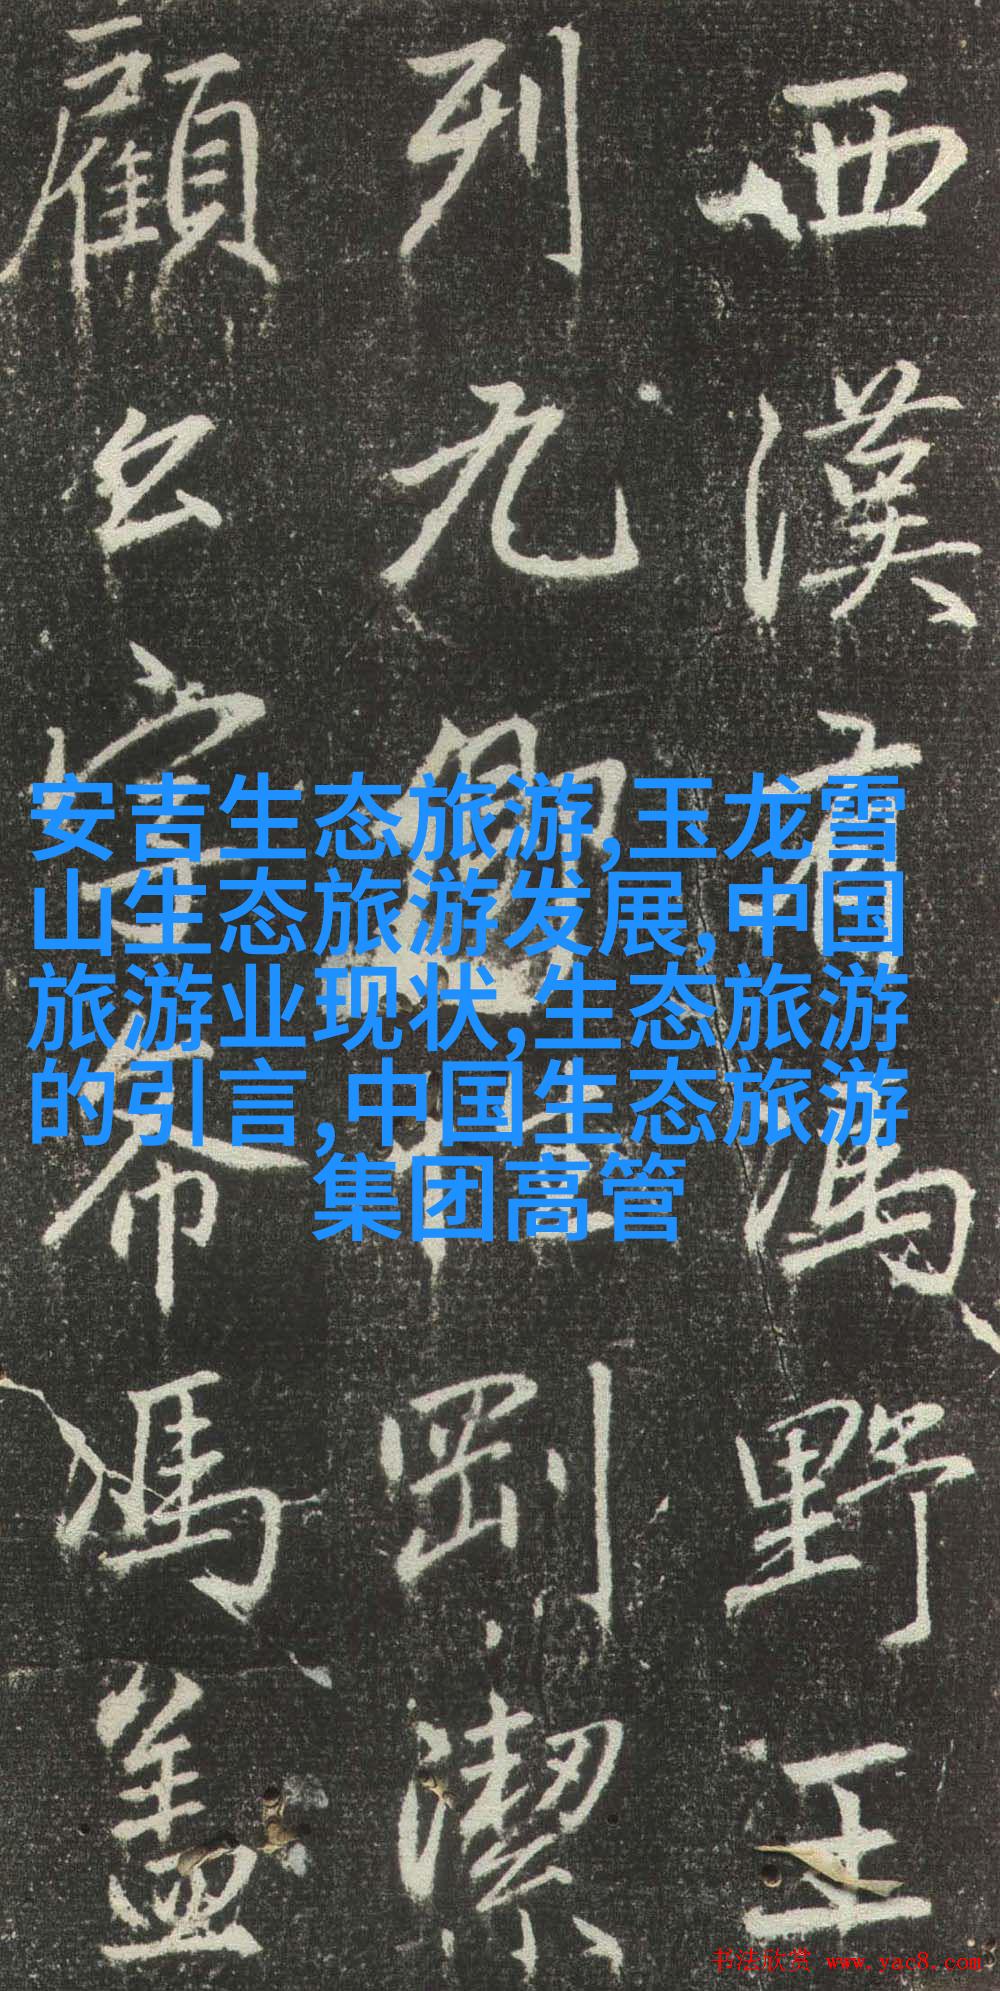 西漢有馮野王
列九卿剛潔
顧公字希馮盖
安吉生态旅游,玉龙雪
山生态旅游发展,中国
旅游业现状,生态旅游
的引言,中国生态旅游
集团高管
书法欣赏 www.yac8.com